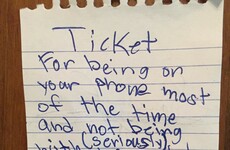 Ticket
For being on
your phone most
of the time
and not being
(seriously)